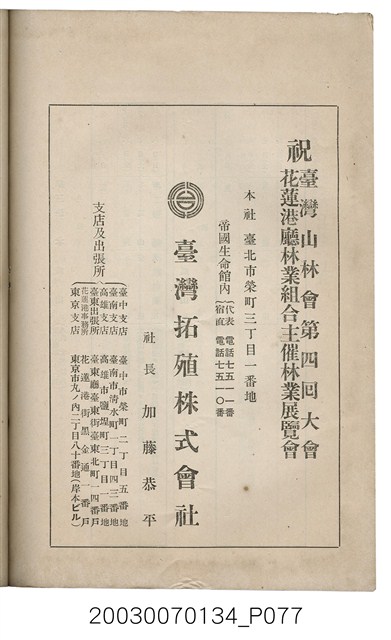 祝 臺灣山林會第四回大會
花蓮港廳林業組合主催林業展覽會
本社 臺北市榮町三丁目一番地
帝國生命館內
(代表 電話七五一一番
宿直 電話七五一〇番)
臺灣拓殖株式會社
社長 加藤恭平
支店及出張所
臺中支店 臺中市榮町二丁目五番地
臺南支店 臺南市清水町一丁目四三番地
高雄支店 高雄市鹽埕町三丁目一番地
臺東出張所 臺東廳臺東街臺東北町一四番戶
花蓮港事務所 花蓮港街黑金通一番戶
東京支店 東京市丸ノ內二丁目八十番地(岸本ビル)
20030070134_P077